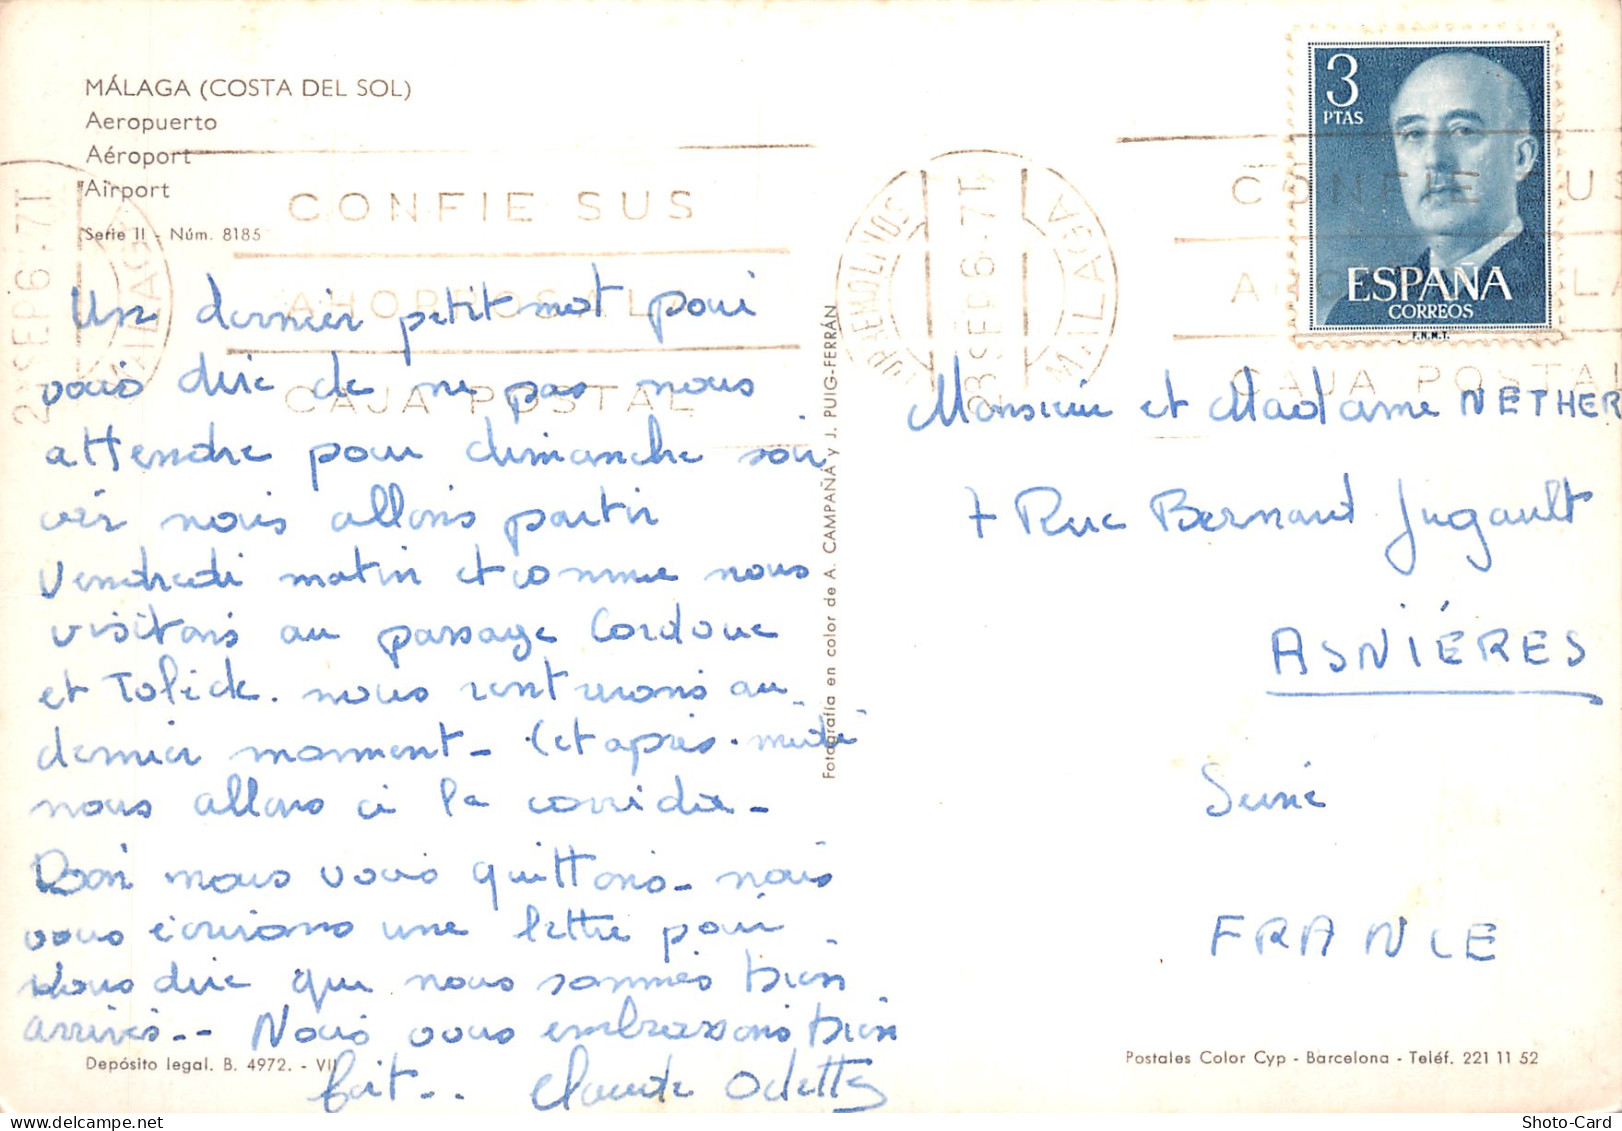 MÁLAGA (COSTA DEL SOL)
Aeropuerto
Aéroport
Airport
Serie II - Núm. 8185
CONFIE SUS
AHORROS A LA
CAJA POSTAL
Un dernier petit mot pour
vous dire de ne pas nous
attendre pour dimanche soir
car nous allons partir
Vendredi matin et comme nous
visitons au passage Cordoue
et Tolède. nous rentrerons au
dernier moment - (et après-midi
nous allons à la corrida -
Bon nous vous quittons - nous
vous écrirons une lettre pour
vous dire que nous sommes bien
arrivés -- Nous vous embrassons bien
fort.. Claude Odette
Depósito legal. B. 4972. - VII
Fotografía en color de A. CAMPAÑÁ y J. PUIG-FERRÁN
TORREMOLINOS
23 SEP 6 - 7T
MALAGA
CONFIE SUS
AHORROS A LA
CAJA POSTAL
3
PTAS
ESPAÑA
CORREOS
F.N.M.T.
Monsieur et Madame NETHER
7 Rue Bernard Jugault
ASNIÉRES
Seine
FRANCE
Postales Color Cyp - Barcelona - Teléf. 221 11 52
Shoto-Card